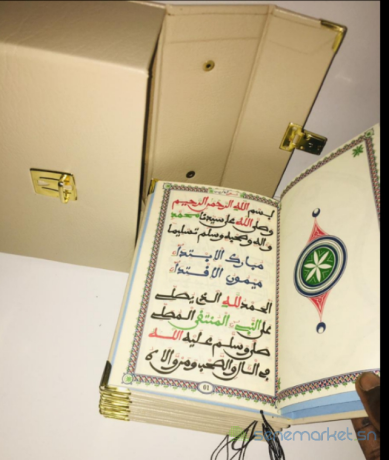 بسم الله الرحمن الرحيم
وصل الله على سيدنا محمد
واله وصحبه وسلم تسليما
مبارك الابتدآء
ميمون
الحمد لله الذي يصلي
على النبي المنتقى المصلي
صلى وسلم عليه الله
والصحب ومن والاه
market.sn